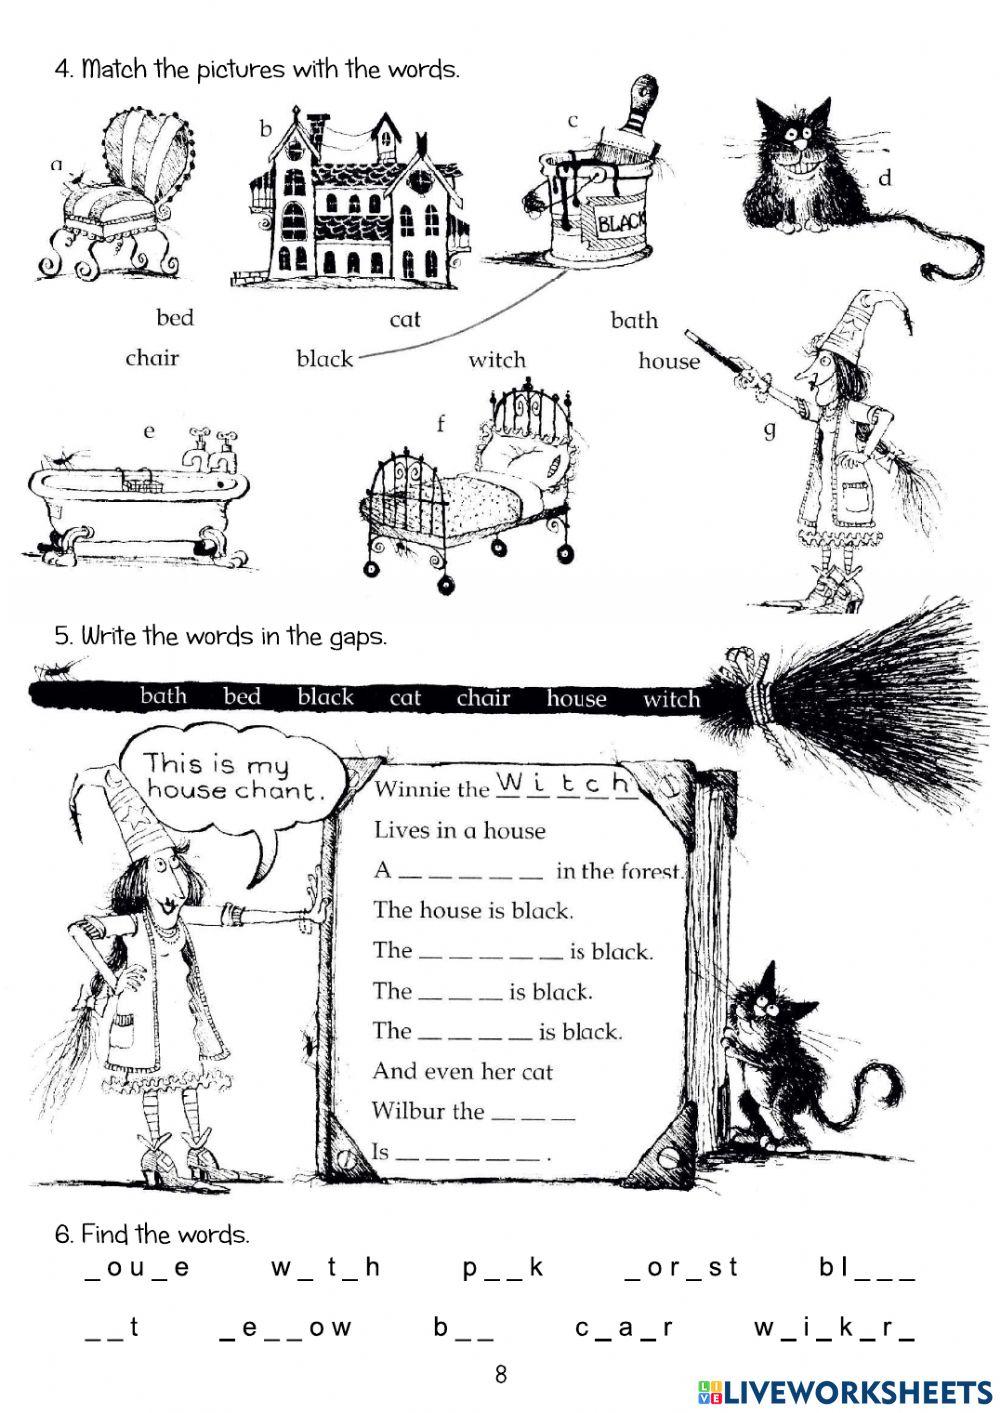 4. Match the pictures with the words.
a
b
c
BLACK
d
bed cat bath
chair black witch house
e
f
g
5. Write the words in the gaps.
bath bed black cat chair house witch
This is my
house chant.
Winnie the W i t c h
Lives in a house
A _ _ _ _ _ in the forest.
The house is black.
The _ _ _ _ _ is black.
The _ _ _ is black.
The _ _ _ _ is black.
And even her cat
Wilbur the _ _ _
Is _ _ _ _ _ .
6. Find the words.
_ o u _ e w _ t _ h p _ _ k _ o r _ s t b l _ _ _
_ _ t _ e _ _ o w b _ _ c _ a _ r w _ i _ k _ r _
8
LIVE LIVEWORKSHEETS